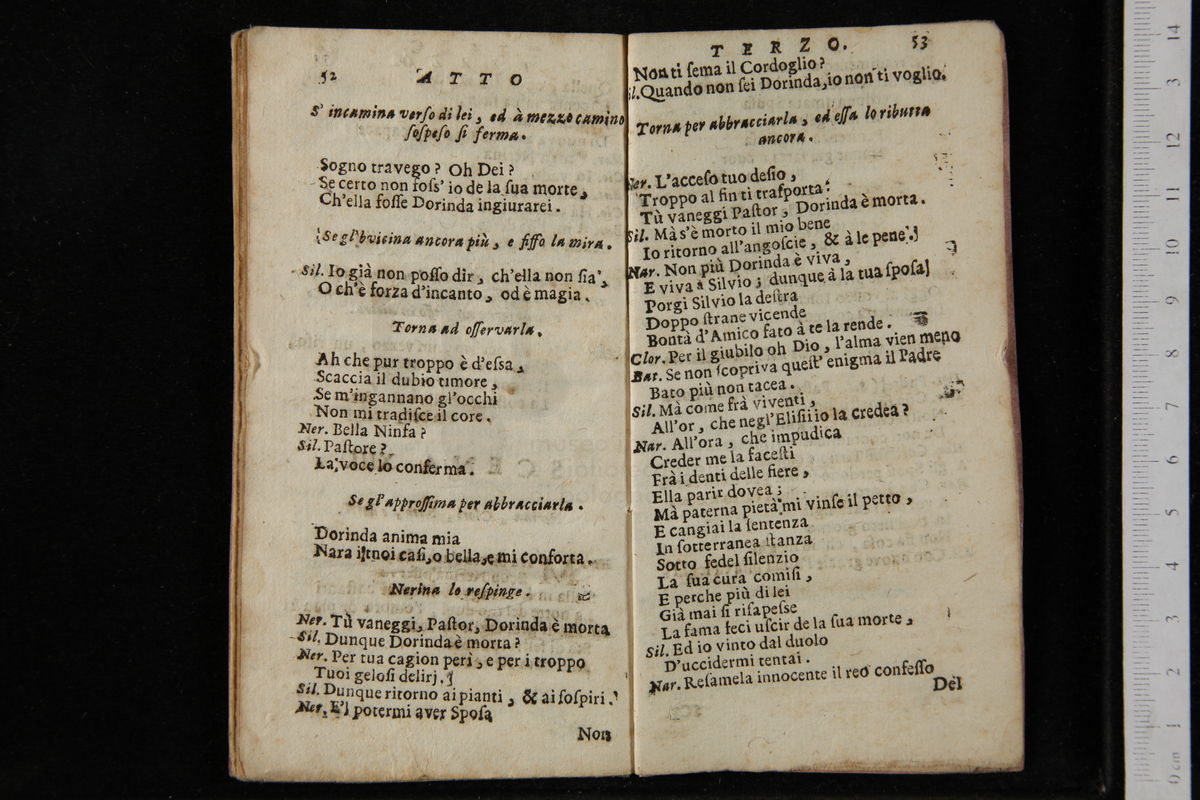 52 ATTO
S' incamina verso di lei, ed à mezzo camino
sospeso si ferma.
Sogno travego? Oh Dei?
Se certo non foss' io de la sua morte,
Ch'ella fosse Dorinda ingiurarei.
Se gl'avvicina ancora più, e fisso la mira.
Sil. Io già non posso dir, ch'ella non sia,
O ch'è forza d'incanto, od è magia.
Torna ad osservarla.
Ah che pur troppo è d'essa,
Scaccia il dubio timore,
Se m'ingannano gl'occhi
Non mi tradisce il core.
Ner. Bella Ninfa?
Sil. Pastore?
La voce lo conferma.
Se gl'approssima per abbracciarla.
Dorinda anima mia
Nara i tuoi casi, o bella, e mi conforta.
Nerina lo respinge.
Ner. Tù vaneggi, Pastor, Dorinda è morta
Sil. Dunque Dorinda è morta?
Ner. Per tua cagion peri, e per i troppo
Tuoi gelosi delirj.
Sil. Dunque ritorno ai pianti, & ai sospiri.
Ner. E'l potermi aver Sposa
Non
TERZO. 53
Non ti sema il Cordoglio?
Sil. Quando non sei Dorinda, io non ti voglio.
Torna per abbracciarla, ed essa lo ributta
ancora.
Ner. L'acceso tuo desio,
Troppo al fin ti trasporta:
Tù vaneggi Pastor, Dorinda è morta.
Sil. Mà s'è morto il mio bene
Io ritorno all'angoscie, & à le pene.
Nar. Non più Dorinda è viva,
E viva a Silvio; dunque à la tua sposa
Porgi Silvio la destra
Doppo strane vicende
Bontà d'Amico fato à te la rende.
Clor. Per il giubilo oh Dio, l'alma vien meno
Bat. Se non scopriva quest' enigma il Padre
Bato più non tacea.
Sil. Mà come frà viventi,
All'or, che negl'Elisii io la credea?
Nar. All'ora, che impudica
Creder me la facesti
Frà i denti delle fiere,
Ella parir dovea;
Mà paterna pietà mi vinse il petto,
E cangiai la sentenza
In sotterranea stanza
Sotto fedel silenzio
La sua cura comisi,
E perche più di lei
Già mai si risapesse
La fama feci uscir de la sua morte,
Sil. Ed io vinto dal duolo
D'uccidermi tentai.
Nar. Resamela innocente il reo confesso
Del